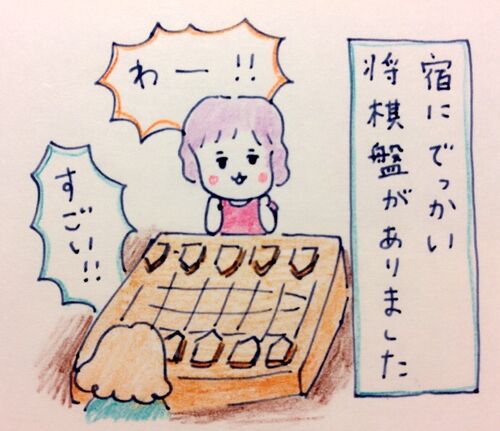 宿にでっかい
将棋盤がありました
わー!!
すごい!!